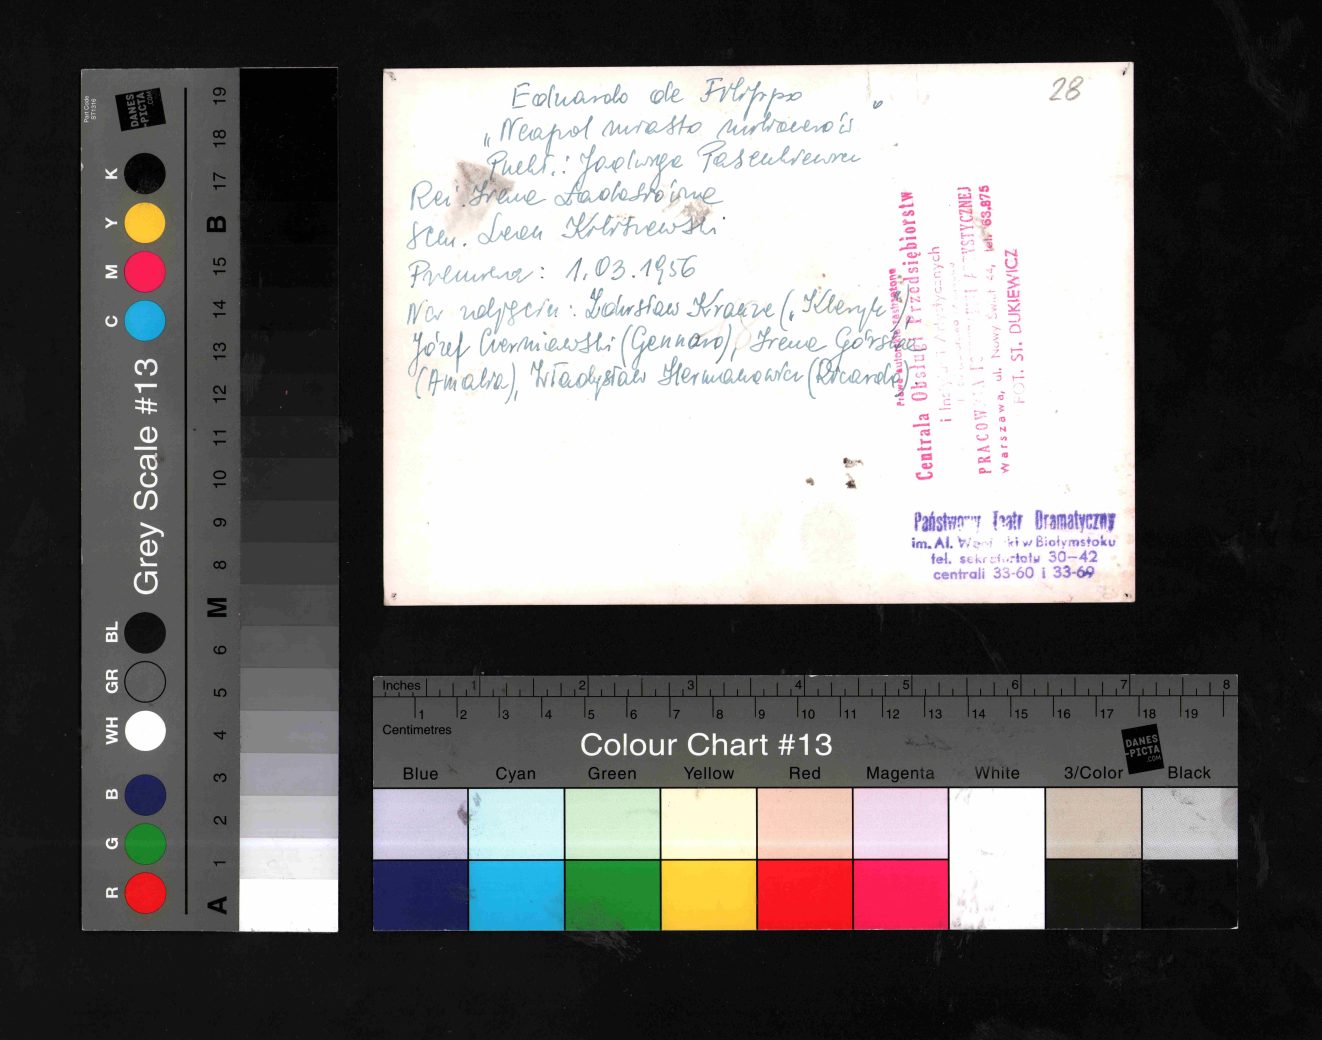 Eduardo de Filippo
„Neapol miasto milionerów"
Przekł.: Jadwiga Pasenkiewicz
Reż. Irena Ładosiówna
Scen. Leon Kołiszewski
Premiera: 1.03.1956
Na zdjęciu: Zdzisław Krauze („Kleryk"),
Józef Czerniawski (Gennaro), Irena Górska
(Amalia), Władysław Hermanowicz (Ricardo)
28
Prawa autorskie zastrzeżone
Centrala Obsługi Przedsiębiorstw
i Artystycznych
PRACOWNIA ARTYSTYCZNEJ
Warszawa, ul. Nowy Świat 44, tel. 63.875
FOT. ST. DUKIEWICZ
Państwowy Teatr Dramatyczny
im. Al. w Białymstoku
tel. sekretariatu 30-42
centrali 33-60 i 33-69
Part Code
ST1316
DANES
-PICTA
.COM
Grey Scale #13
R G B WH GR BL C M Y K
A 1 2 3 4 5 6 M 8 9 10 11 12 13 14 15 B 17 18 19
Inches 1 2 3 4 5 6 7 8
1 2 3 4 5 6 7 8 9 10 11 12 13 14 15 16 17 18 19
Centimetres
Colour Chart #13
DANES
-PICTA
.COM
Blue Cyan Green Yellow Red Magenta White 3/Color Black